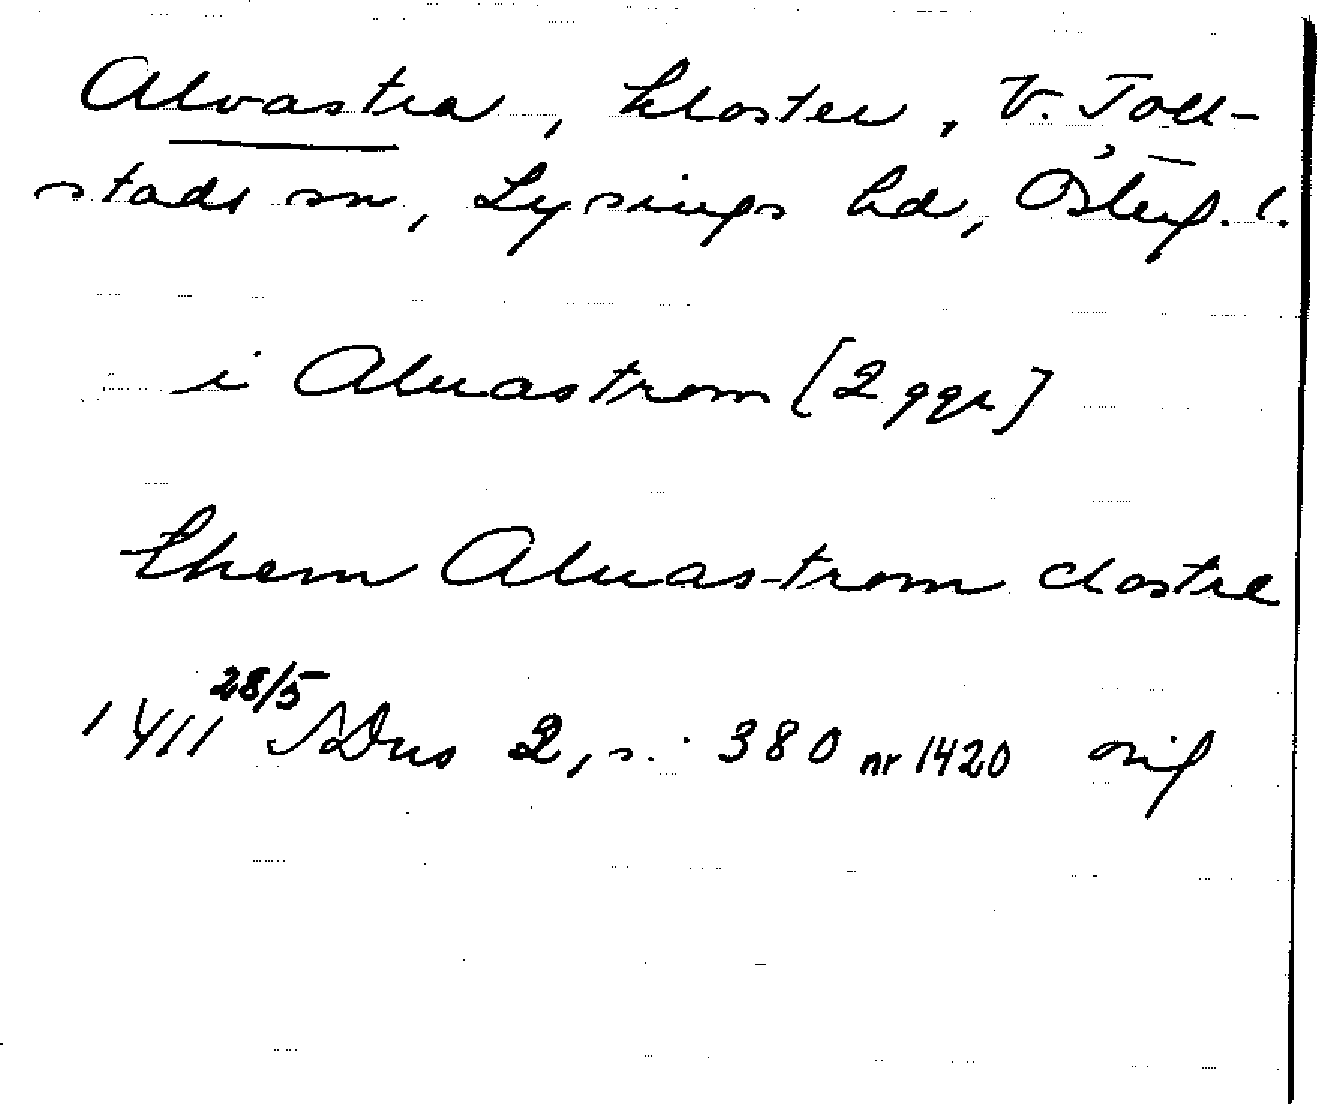 Alvastra, kloster, V. Toll-
stads sn, Lysings hd, Österg. l.
i Aluastrom [2 ggr]
them Aluastrom clostre
1411 28/5 SDns 2, s. 380 nr 1420 orig